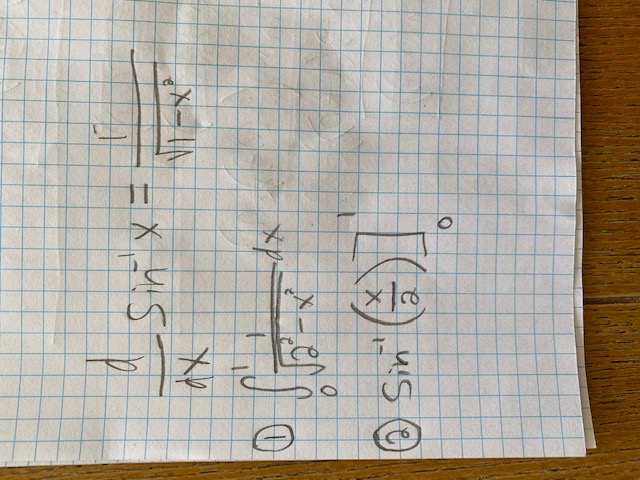 d/dx Sin⁻¹ x = 1/√(1-x²)
① ∫₀¹ 1/√(2²-x²) dx
② Sin⁻¹(x/2)]₀¹